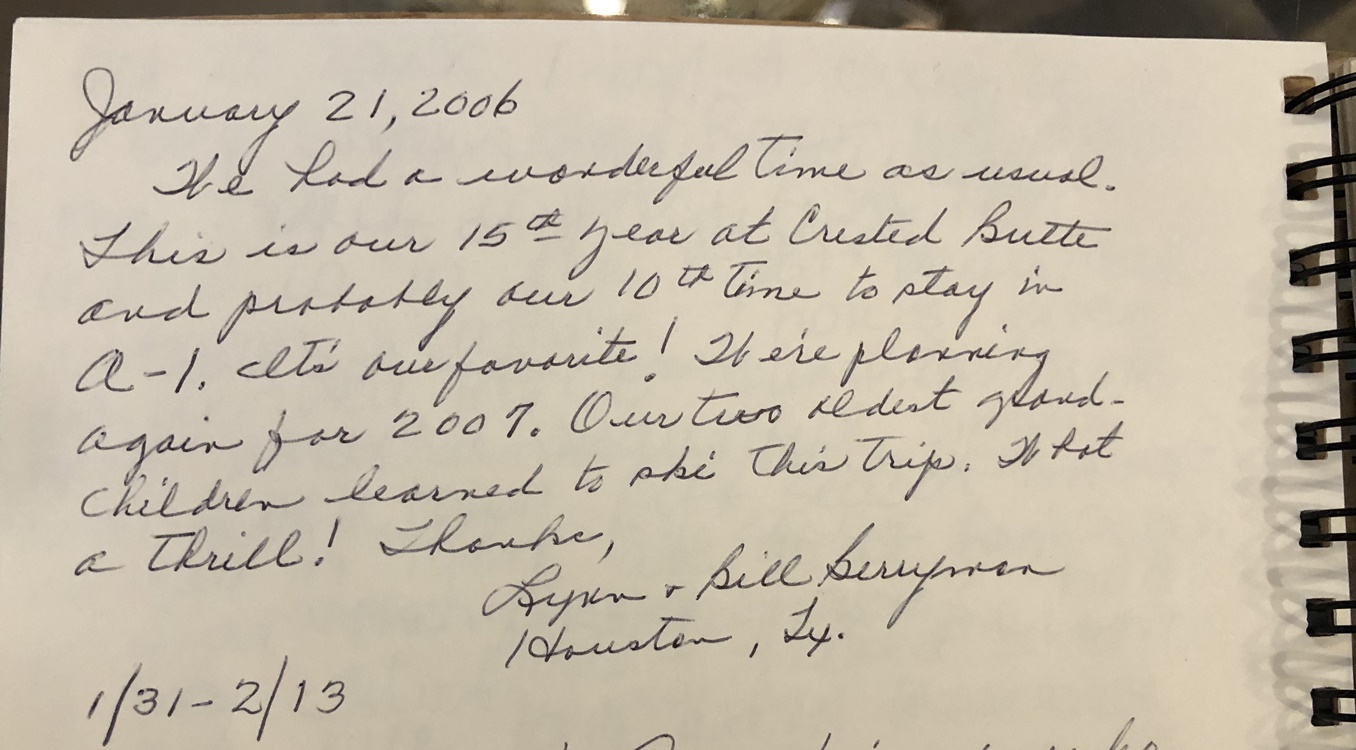 January 21, 2006
We had a wonderful time as usual.
This is our 15th year at Crested Butte
and probably our 10th time to stay in
A-1. It's our favorite! We're planning
again for 2007. Our two oldest grand-
children learned to ski this trip. What
a thrill! Thanks,
Lynn + Bill Berryman
Houston, Tx.
1/31-2/13